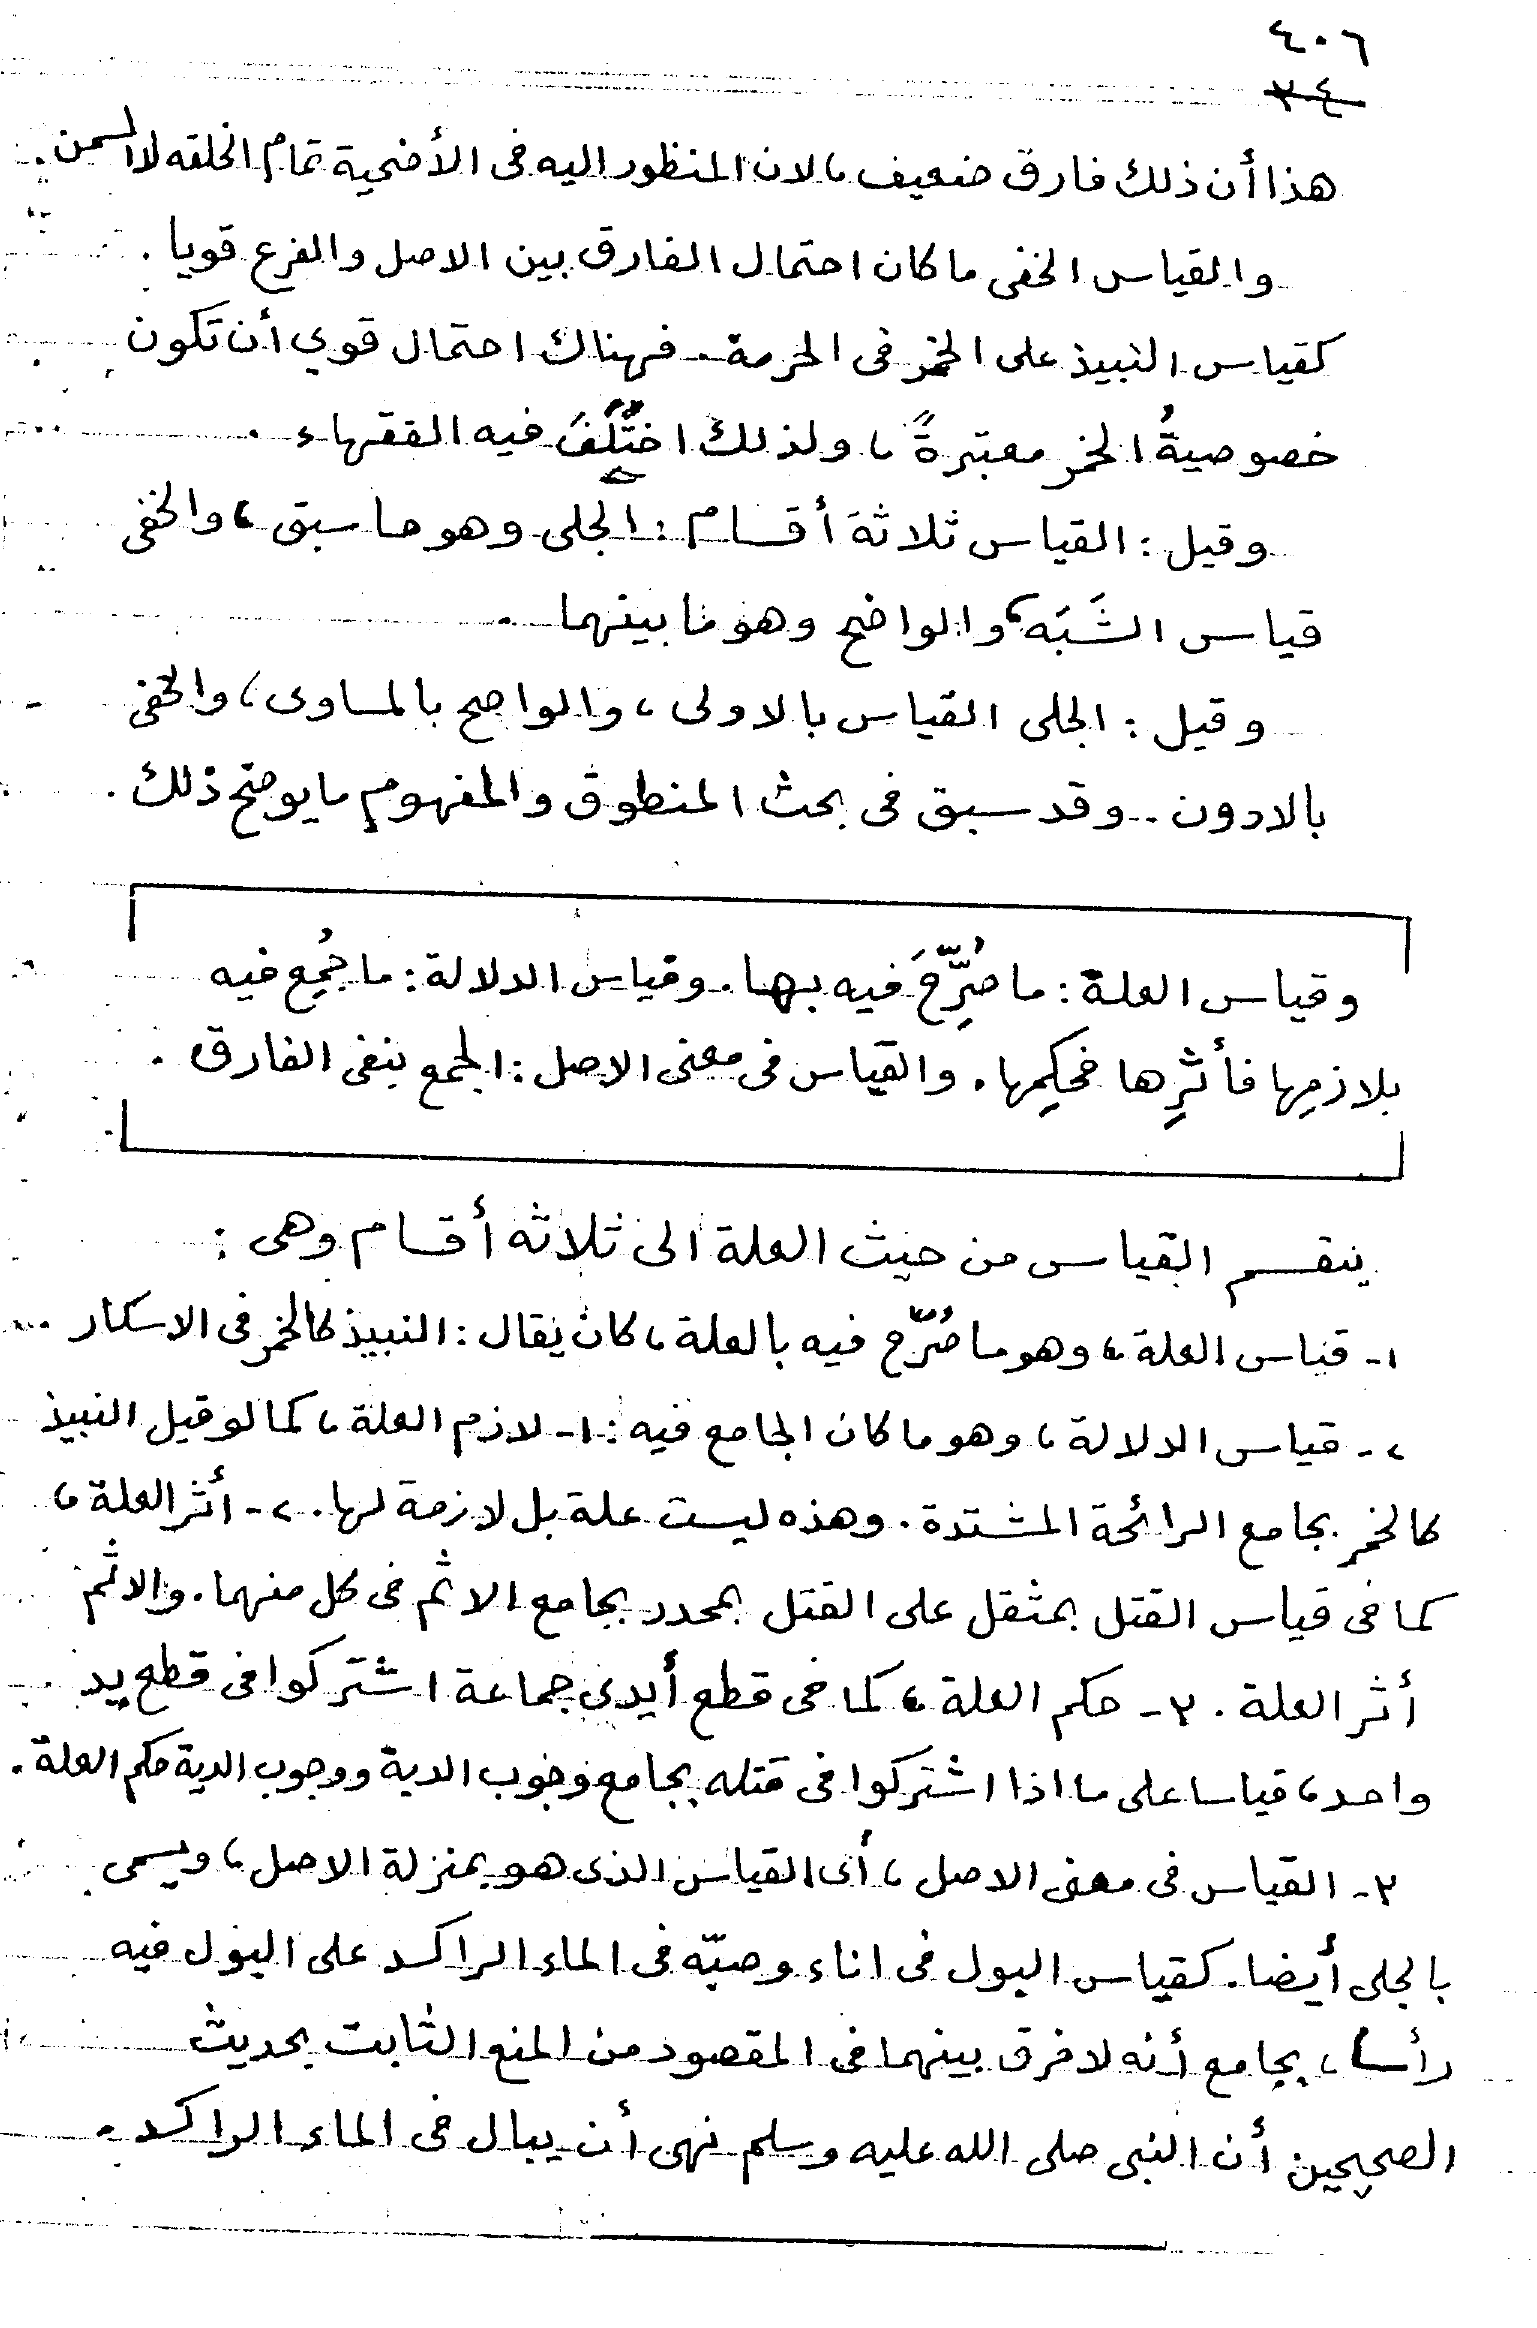 ٤٠٦
٣٤
هذا أن ذلك فارق ضعيف ، لان المنظور اليه فى الأضحية تمام الخلقه لا السمن .
والقياس الخفى ما كان احتمال الفارق بين الاصل والفرع قويا .
كقياس النبيذ على الخمر فى الحرمة . فهناك احتمال قوي أن تكون
خصوصيةُ الخمر معتبرةً ، ولذلك اختُلِفَ فيه الفقهاء .
وقيل : القياس ثلاثةَ أقسام : الجلى وهو ما سبق ، والخفى
قياس الشَبَه ، والواضح وهو ما بينهما .
وقيل : الجلى القياس بالاولى ، والواضح بالمساوى ، والخفى
بالادون .. وقد سبق فى بحث المنطوق والمفهوم ما يوضح ذلك .
وقياس العلة : ما صُرِّحَ فيه بها . وقياس الدلالة : ما جُمِع فيه
بلازمِها فأثرِها فحكمِها . والقياس فى معنى الاصل : الجمع بنفى الفارق .
ينقسم القياس من حيث العلة الى ثلاثه أقسام وهى :
١ - قياس العلة ، وهو ما صُرّح فيه بالعلة ، كان يقال : النبيذ كالخمر فى الاسكار
٢ - قياس الدلالة ، وهو ما كان الجامع فيه : ١ - لازم العلة ، كما لو قيل النبيذ
كالخمر بجامع الرائحة المشتدة . وهذه ليست علة بل لازمة لها . ٢ - أثر العلة ،
كما فى قياس القتل بمثقل على القتل بمحدد بجامع الاثم فى كل منهما . والاثم
أثر العلة . ٣ - حكم العلة ، كما فى قطع أيدى جماعة اشتركوا فى قطع يد
واحد ، قياسا على ما اذا اشتركوا فى قتله بجامع وجوب الدية ووجوب الدية حكم العلة .
٣ - القياس فى معنى الاصل ، أى القياس الذى هو بمنزلة الاصل ، ويسمى
بالجلى أيضا . كقياس البول فى اناء وصبّه فى الماء الراكد على البول فيه
رأسا ، بجامع أنه لا فرق بينهما فى المقصود من المنع الثابت بحديث
الصحيحين أن النبى صلى الله عليه وسلم نهى أن يبال فى الماء الراكد .